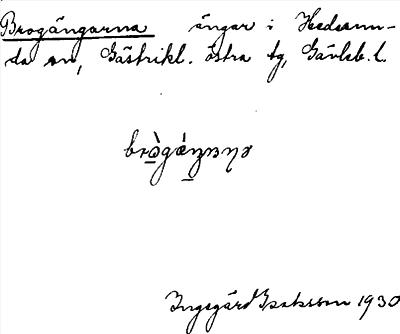 Brogängarna ängar i Hedesun-
da sn, Gästrikl. östra tg, Gävleb. l.
Ingegärd Isaksson 1930